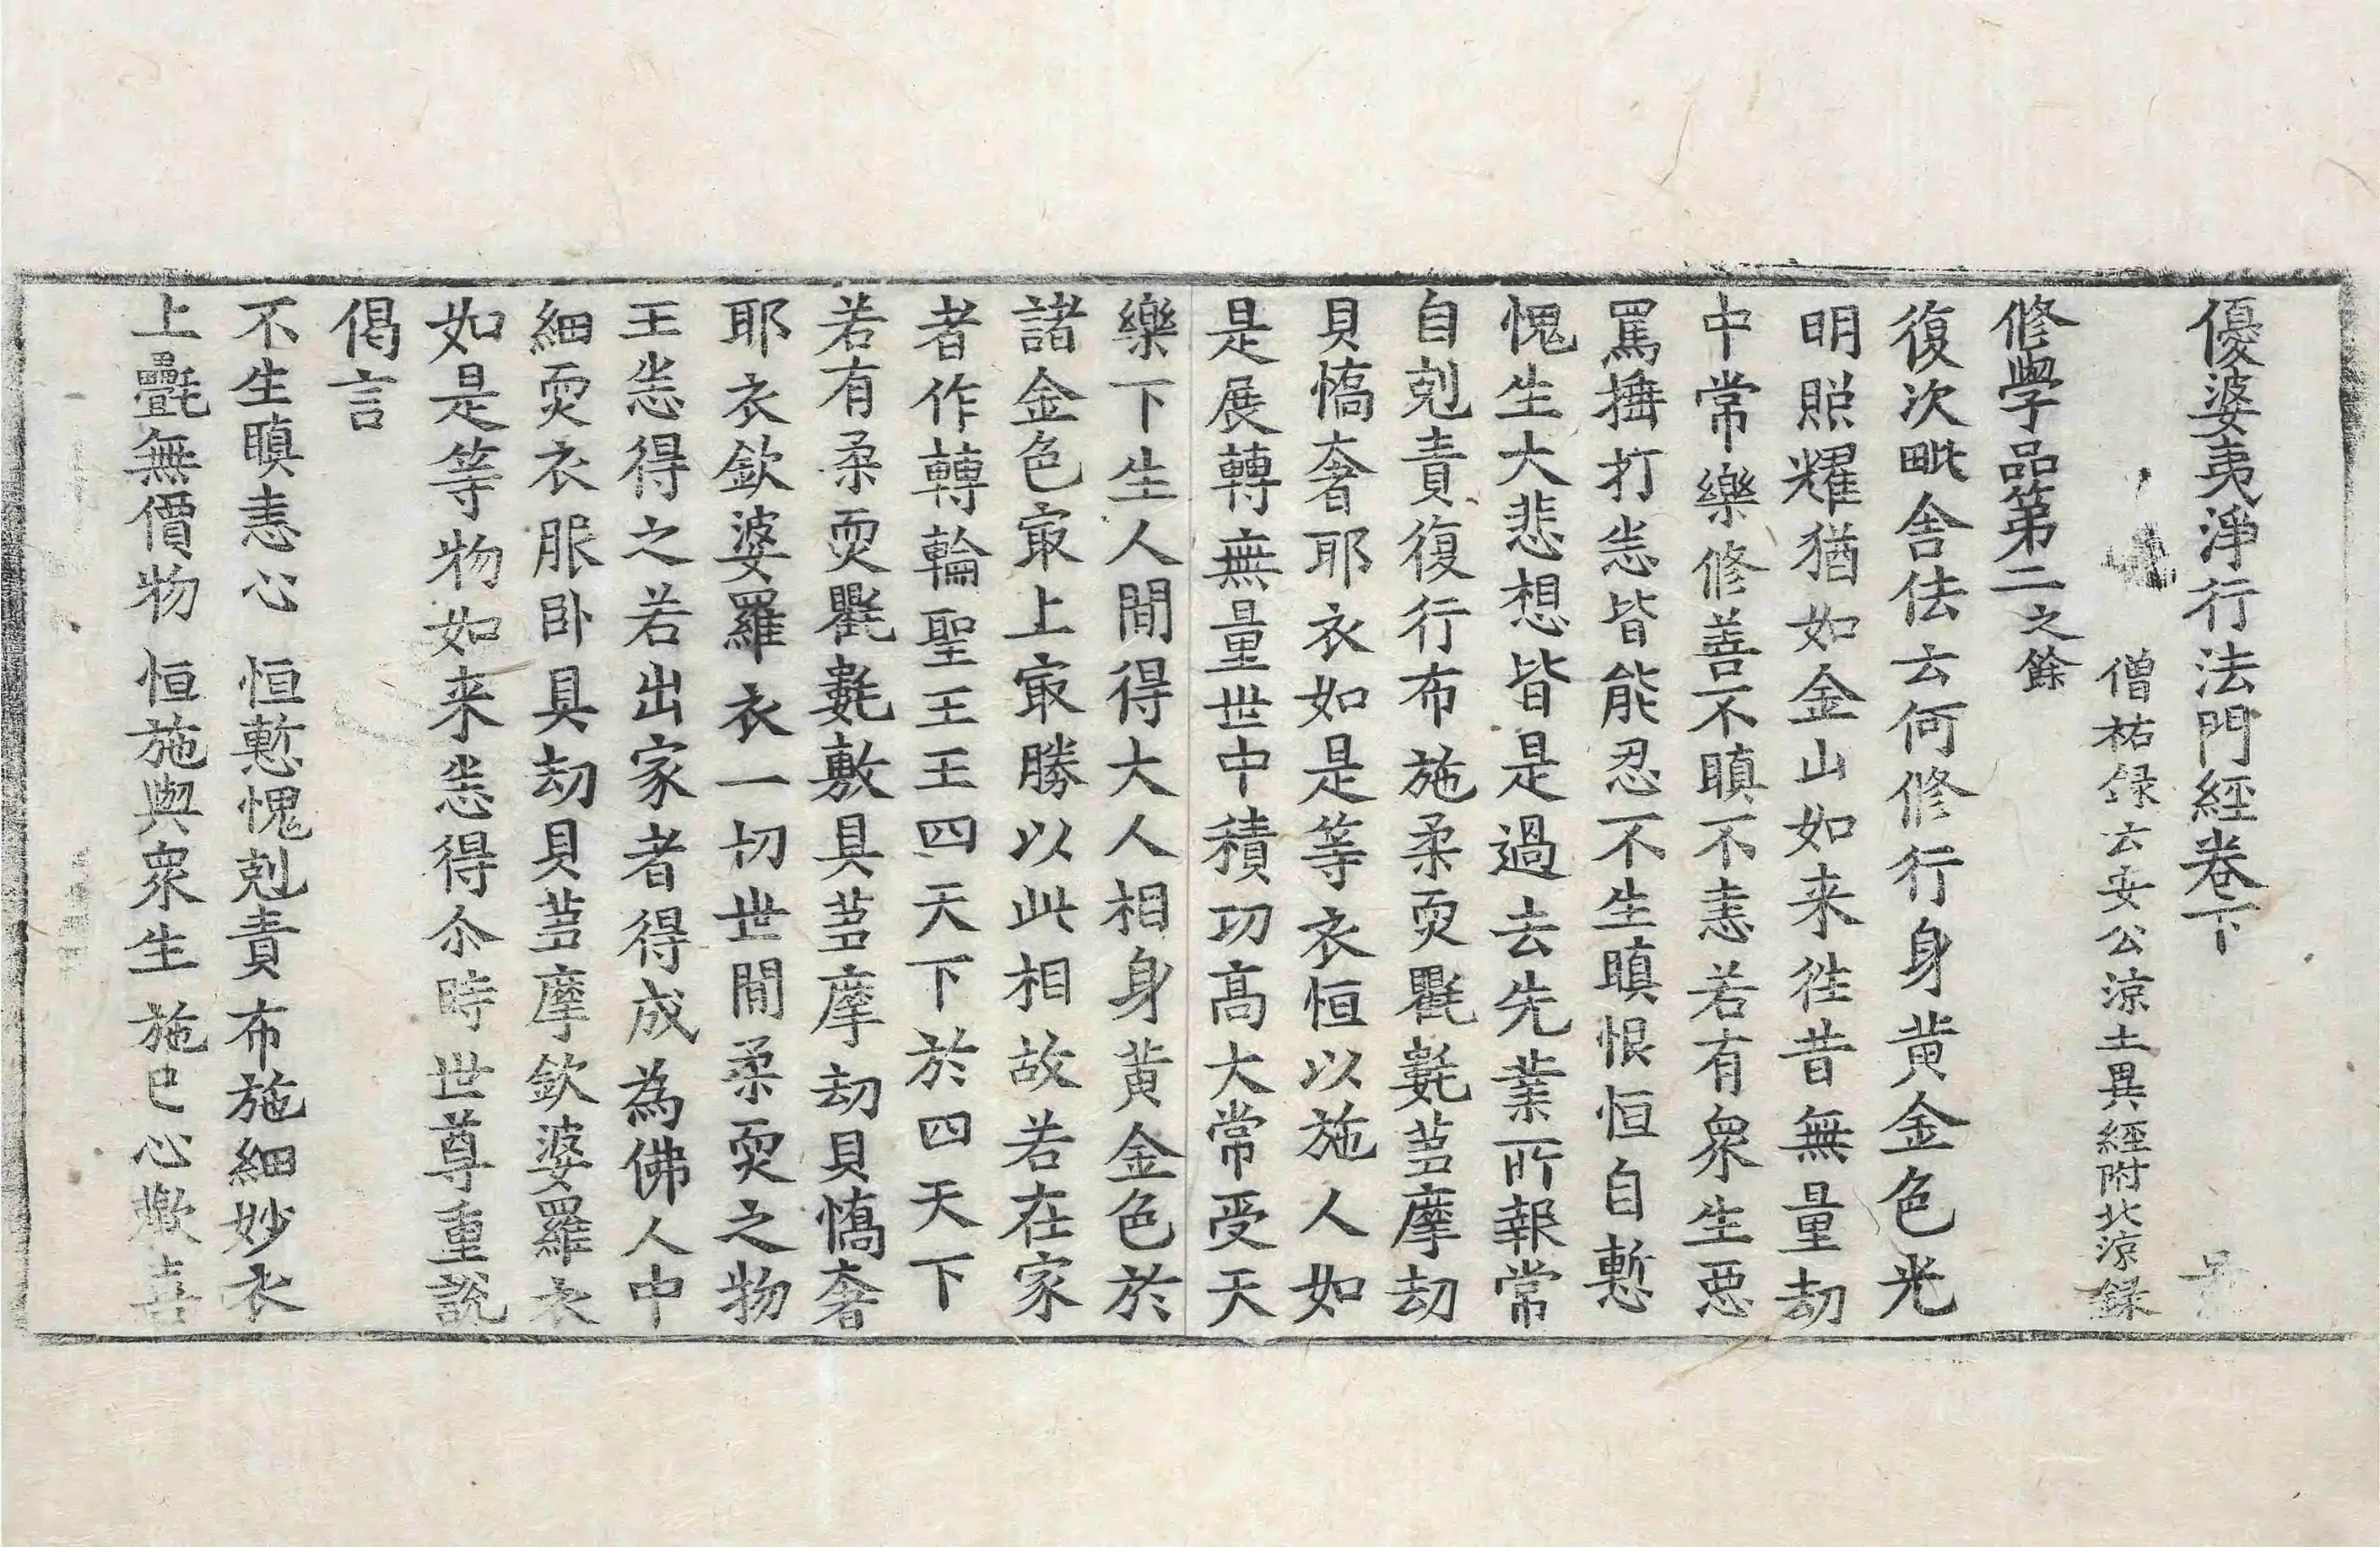 優婆夷淨行法門經卷下
僧祐録云安公涼土異經附北涼録
修學品第二之餘
復次毗舍佉云何修行身黄金色光
明照耀猶如金山如来徃昔無量劫
中常樂修善不瞋不恚若有衆生惡
罵捶打恙皆能忍不生瞋恨恒自慙
愧生大悲想皆是過去先業所報常
自剋責復行布施柔耎氍㲣蒭摩劫
貝憍奢耶衣如是等衣恒以施人如
是展轉無量世中積功高大常受天
樂下生人間得大人相身黄金色於
諸金色㝡上㝡勝以此相故若在家
者作轉輪聖王王四天下於四天下
若有柔耎氍㲣敷具蒭摩劫貝憍奢
耶衣欽婆羅衣一切世間柔耎之物
王恙得之若出家者得成為佛人中
細耎衣服卧具劫貝蒭摩欽婆羅衣
如是等物如来恙得尒時世尊重說
偈言
不生瞋恚心　恒慙愧剋責　布施細妙衣
上㲲無價物　恒施與衆生　施已心歡喜